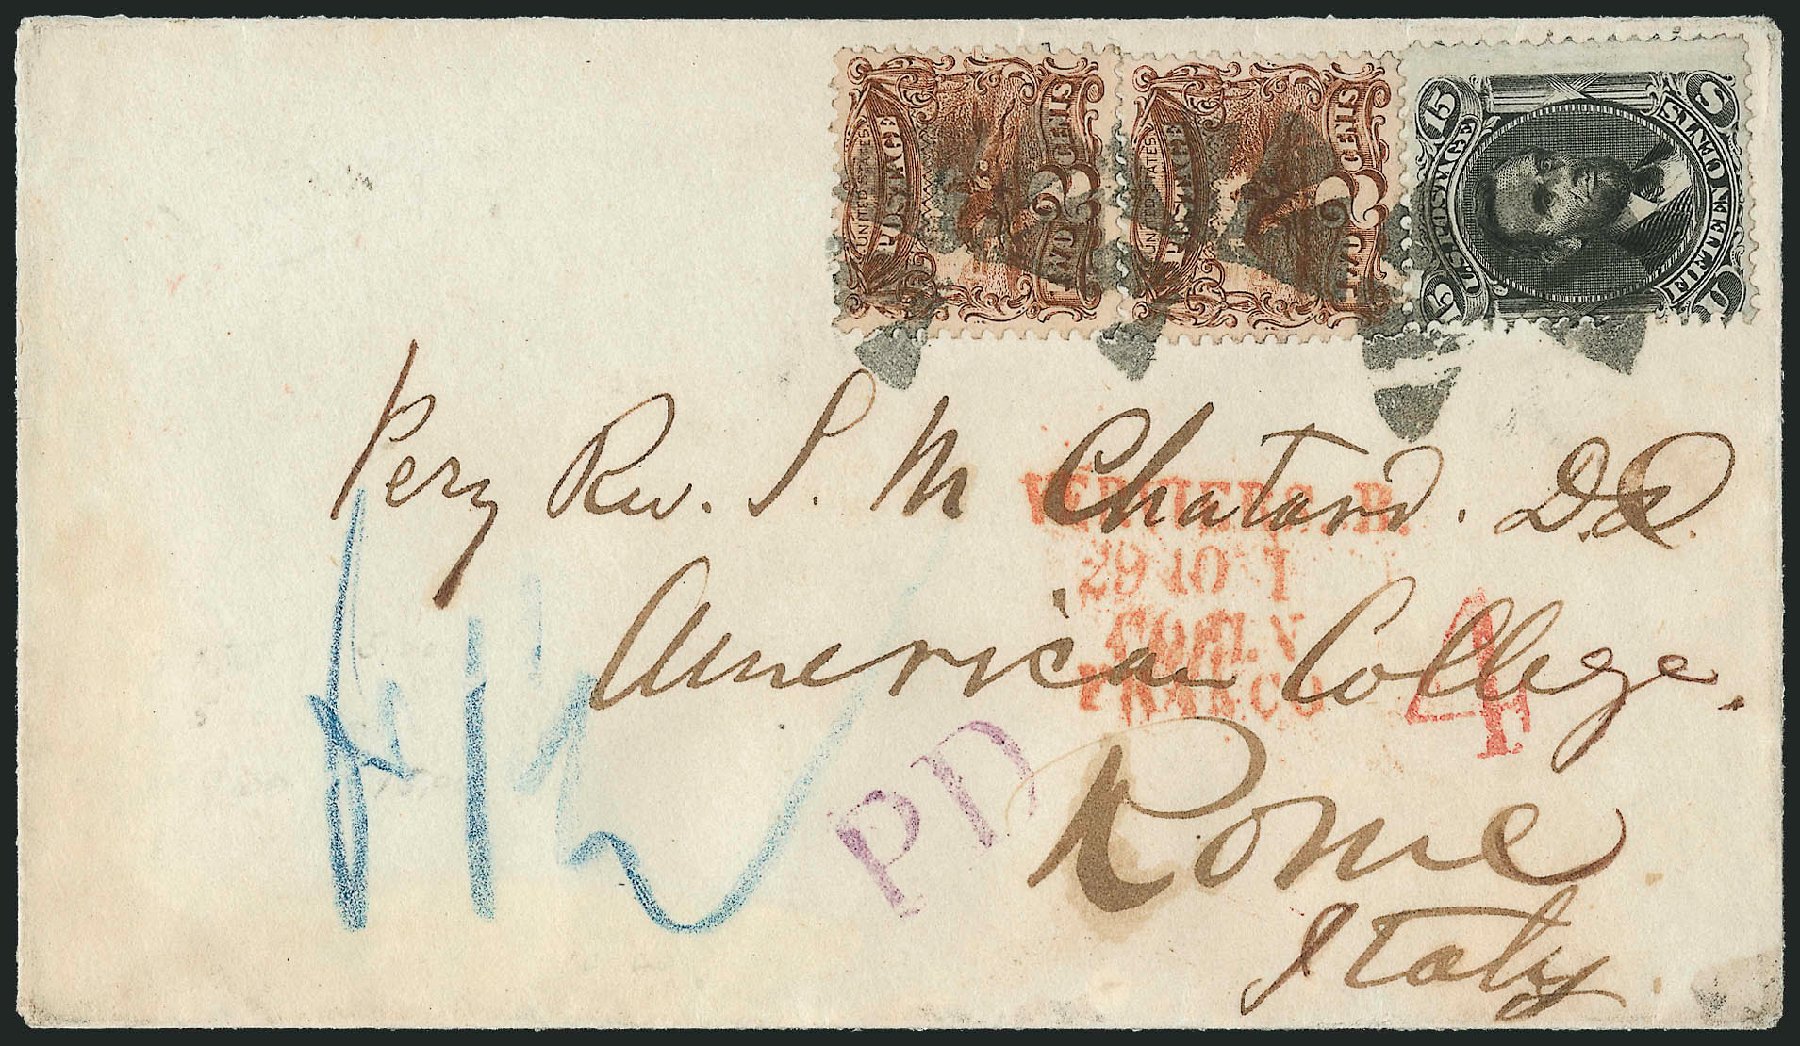 UNITED STATES
POSTAGE
2
TWO CENTS
UNITED STATES
POSTAGE
2
TWO CENTS
15 U.S. POSTAGE 15
FIFTEEN CENTS
U S
Very Rev. S. M Chatard. D.D.
VERVIERS
29 10 I
FRANCO
American College.
4
PD
Rome
Italy.